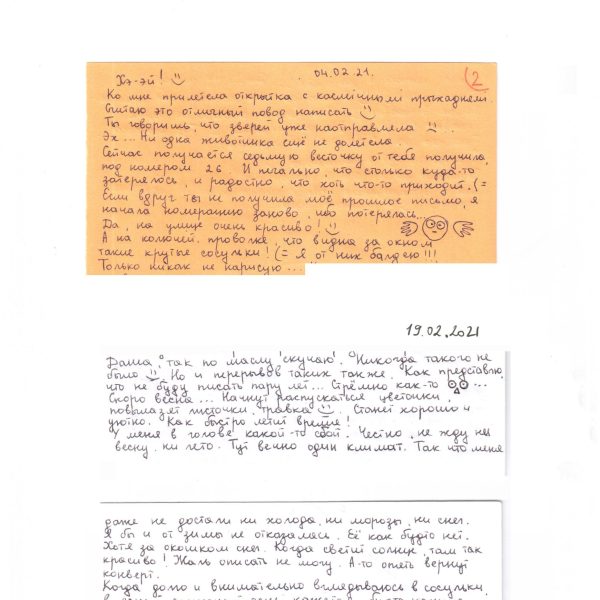 Хэ-эй! 04.02.21. 2
Ко мне прилетела открытка с касмiчнымi прыхаднем.
Считаю это отличный повод написать
Ты говоришь, что зверей уже наотправляла
Эх... Ни одна животинка ещё не долетела.
Сейчас получается седьмую весточку от тебя получила,
под номером 26. И печально, что столько куда-то
затерялось, и радостно, что хоть что-то приходит. (=
Если вдруг ты не получила моё прошлое письмо, я
начала нумерацию заново, ибо потерялась...
Да, на улице очень красиво!
А на колючей проволке, что видна за окном
такие крутые сосульки! (= Я от них балдею!!!
Только никак не нарисую...
19.02.2021
Даша, так по маслу "скучаю". Никогда такого не
было Но и перерывов таких также. Как представлю,
что не буду писать пару лет... Стрёмно как-то ...
Скоро весна... Начнут распускаться цветочки,
повылазят листочки, травка. Станет хорошо и
уютно. Как быстро летит время!
У меня в голове какой-то сбой. Честно, не жду ни
весну, ни лето. Тут вечно один климат. Так что меня
даже не достали ни холода, ни морозы, ни снег.
Я бы и от зимы не отказалась. Её как будто нет.
Хотя за окошком снег. Когда светит солнце, там так
красиво! Жаль описать не могу. А-то опять вернут
конверт.
Когда долго и внимательно вглядываюсь в сосульки,